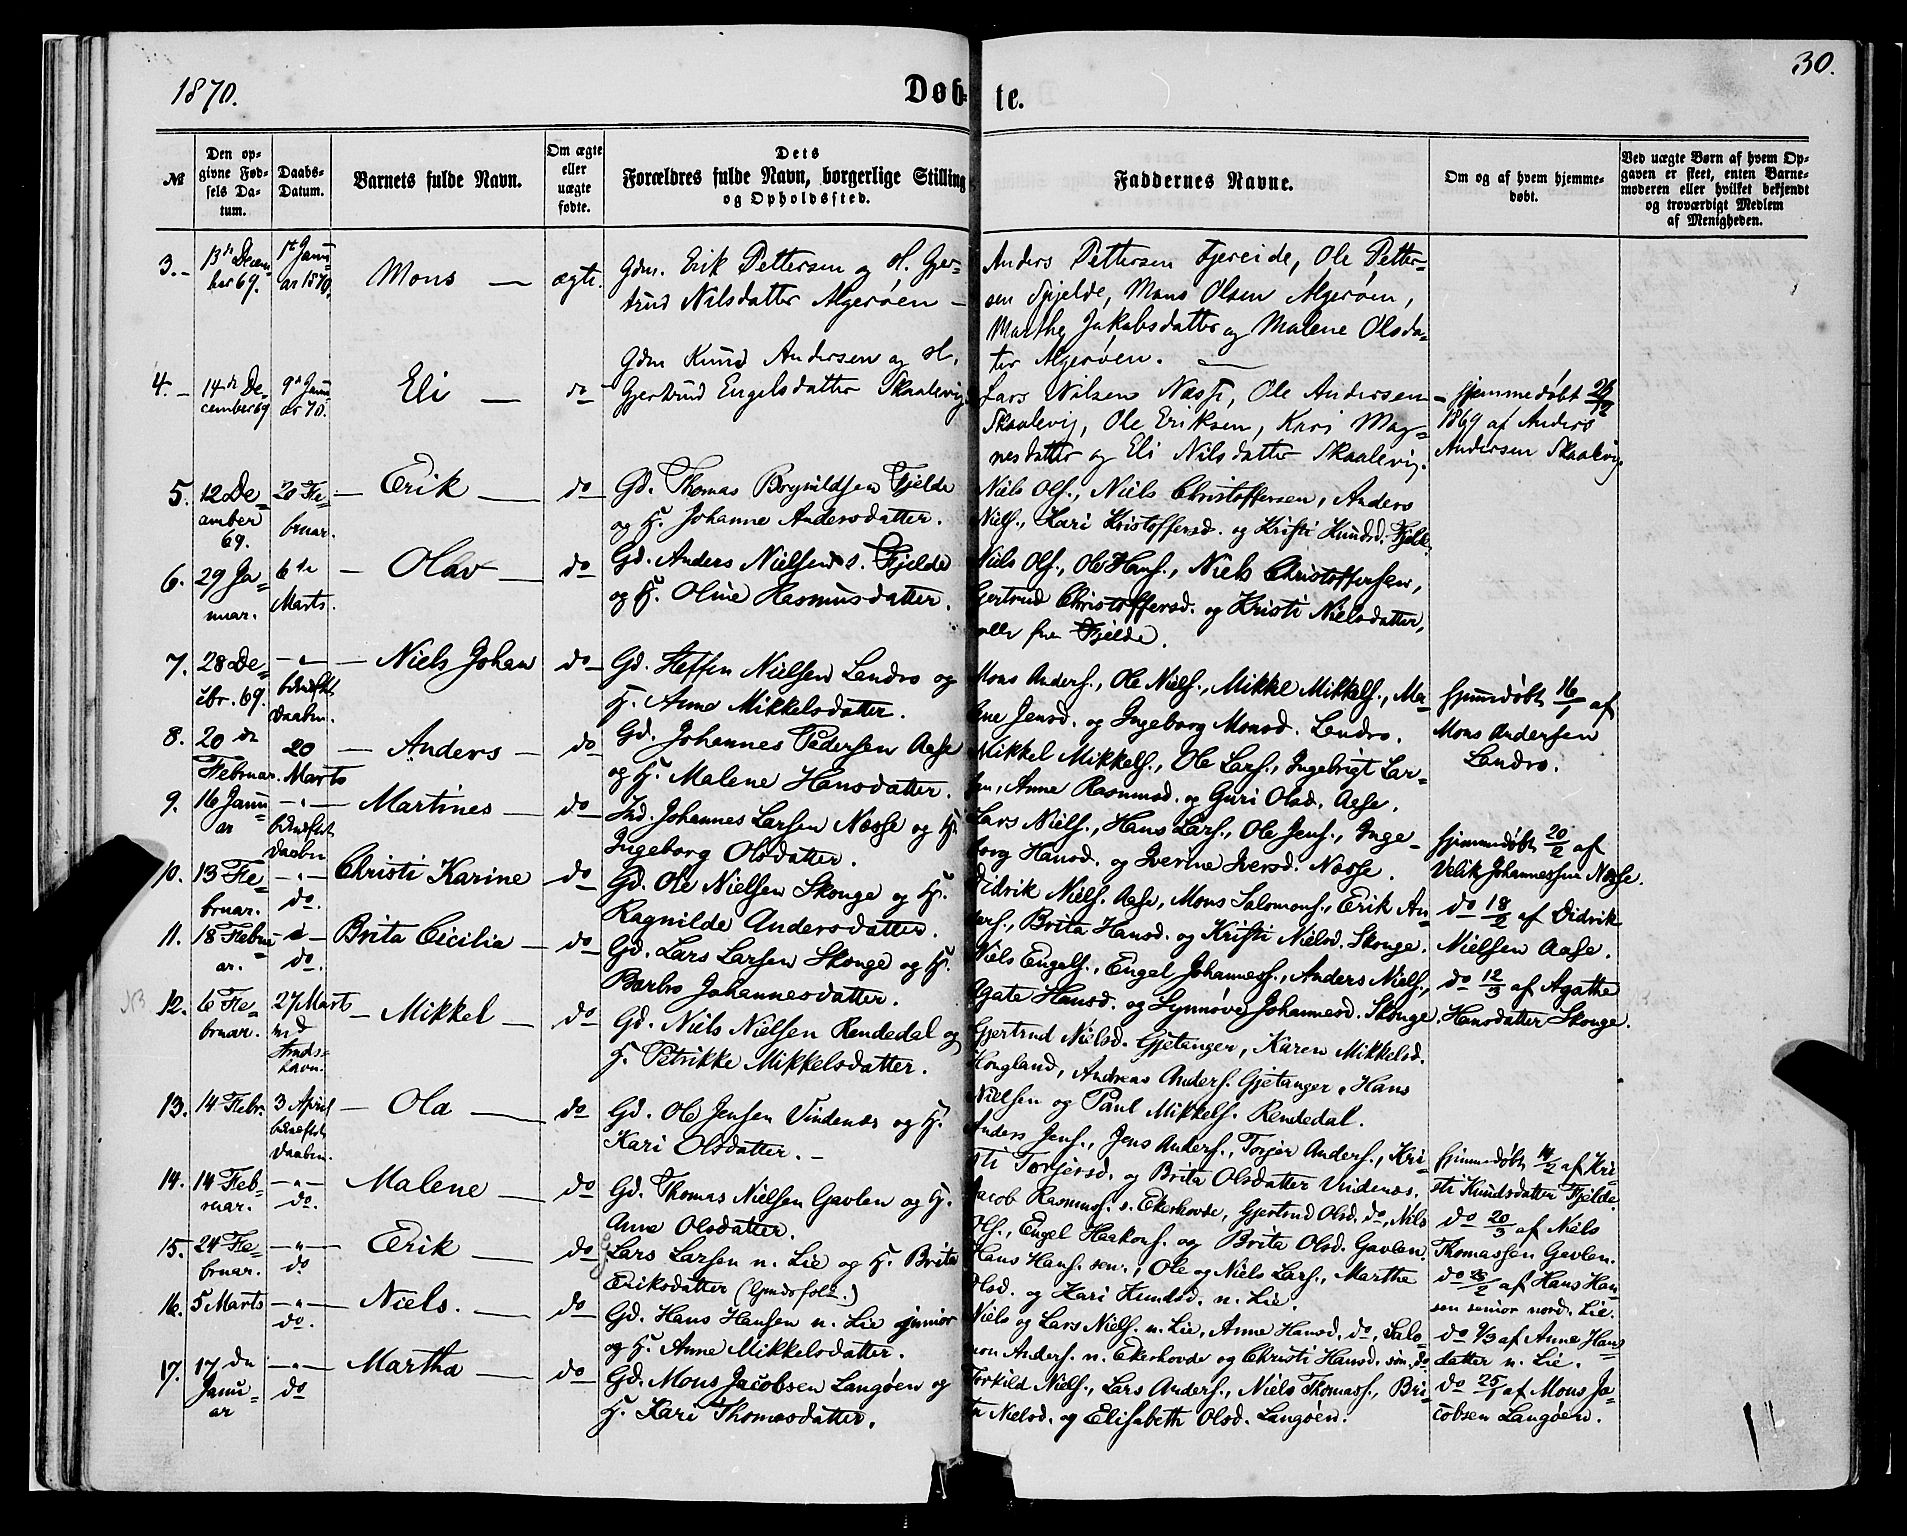 1870.
Døb-
te.
30.
№
Den op-
givne Fød-
sels Da-
tum.
Daabs-
Datum.
Barnets fulde Navn.
Om ægte
eller
uægte
fødte.
Dets
Forældres fulde Navn, borgerlige Stilling
og Opholdssted.
Faddernes Navne.
Om og af hvem hjemme-
døbt.
Ved uægte Børn af hvem Op-
gaven er skeet, enten Barne-
moderen eller hvilket bekjendt
og troværdigt Medlem
af Menigheden.
3.
13de Decem-
ber 69.
1ste Janu-
ar 1870.
Mons
ægte.
Gdm. Erik Pettersen og H. Gjer-
trud Nilsdatter Algerøen
Anders Pettersen Tjereide, Ole Petter-
sen Fjelde, Mons Olsen Algerøen,
Marthe Jakobsdatter og Malene Olsdat-
ter Algerøen.
4.
14de De-
cember 69
9de Janu-
ar 70.
Eli
do
Gdm Knud Andersen og H.
Gjertrud Engelsdatter Skaalevig
Lars Nilsen Næsse, Ole Andersen
Skaalevig, Ole Eriksen, Kari Mag-
nesdatter og Eli Nilsdatter Skaalevig.
Hjemmedøbt 26/12
1869 af Anders
Andersen Skaalevig
5.
12 De-
cember
69.
20 Fe-
bruar.
Erik
do
Gd. Thomas Brynildsen Fjelde
og H. Johanne Andersdatter.
Niels Ols., Niels Christoffersen, Anders
Niels., Kari Kristoffersd. og Kristi Knudsd. Fjelde.
6.
29 Ja-
nuar.
6te
Marts.
Olav
do
Gd. Anders Nielsen s. Fjelde
og H. Oline Rasmusdatter.
Niels Ols., Ole Hans., Niels Christoffersen,
Gjertrud Christoffersd. og Kristi Nielsdatter,
alle fra Fjelde.
7.
28 De-
cbr. 69.
— " —
bekræftet
Daaben.
Niels Johan
do
Gd. Steffen Nielsen Landro og
H. Anne Mikkelsdatter.
Mons Anders., Ole Niels., Mikkel Mikkels., Ma-
lene Jensd. og Ingeborg Monsd. Landro.
Hjemmedøbt 16/1 af
Mons Andersen
Landro.
8.
20de
Februar.
20
Marts
Anders
do
Gd. Johannes Pedersen Aase
og H. Malene Hansdatter.
Mikkel Mikkels., Ole Lars., Ingebrigt Lar-
sen, Anne Rasmusd. og Guri Olsd. Aase.
9.
16 Janu-
ar
— " —
bekræftet
Daaben
Martines
do
Ind. Johannes Larsen Næsse og H.
Ingeborg Olsdatter.
Lars Niels., Hans Lars., Ole Jens., Inge-
borg Hansd. og Iverine Iversd. Næsse.
Hjemmedøbt 20/2 af
Velik Johannessen Næsse.
10.
13 Fe-
bruar.
— " —
do.
Christi Karine
do
Gd. Ole Nielsen Skonge og H.
Ragnilde Andersdatter.
Didrik Niels. Aase, Mons Salomons., Erik An-
ders., Brita Hansd. og Kristi Nielsd. Skonge.
do 18/2 af Didrik
Nielsen Aase.
11.
18 Febru-
ar.
— " —
do.
Brita Cicilia
do
Gd. Lars Larsen Skonge og H.
Barbro Johannesdatter.
Niels Engels., Engel Johannes., Anders Niels.,
Agate Hansd. og Synnøve Johannesd. Skonge.
do 12/3 af Agathe
Hansdatter Skonge.
NB
12.
6 Fe-
bruar.
27 Marts
Mikkel
do
Gd. Niels Nielsen Rendedal og
H. Petrikke Mikkelsdatter.
Gjertrud Nielsd. Gjetanger, Karen Mikkelsd.
Hougland, Andreas Anders. Gjetanger, Hans
Nielsen og Paul Mikkels. Rendedal.
13.
14 Febr.
3 April
bekræftet
Daaben.
Ola
do
Gd. Ole Jensen Vindenæs og H.
Kari Olsdatter.
Anders Jens., Jens Anders., Torger Anders., Kri-
sti Torgersd. og Brita Olsdatter Vindenæs.
Hjemmedøbt 14/2 af Kri-
sti Knudsdatter Fjelde.
14.
14 Feb-
ruar.
— " —
do.
Malene
do
Gd. Thomas Nielsen Gavlen og H.
Anne Olsdatter.
Jacob Rasmus. s. Ekerhovde, Gjertrud Olsd. do, Niels
Ols., Engel Haakons. og Brita Olsd. Gavlen.
do 20/3 af Niels
Thomassen Gavlen.
15.
24 Fe-
bruar.
— " —
do
Erik
do
Lars Larsen n. Lie og H. Brita
Eriksdatter (Gaardsfolk.)
Hans Hans. sen., Ole og Niels Lars., Marthe
Olsd. og Kari Knudsd. n. Lie.
do 28/2 af Hans Han-
sen senior nord. Lie.
16.
5 Marts
— " —
do.
Niels.
do
Gd. Hans Hansen n. Lie junior
og H. Anne Mikkelsdatter.
Niels og Lars Niels. n. Lie, Anne Hansd. do, Salo-
mon Anders. n. Ekerhovde og Christi Hansd. søn. do
do 9/3 af Anne Hans-
datter n. Lie.
17.
17de
Janu-
ar
— " —
do
Martha
do
Gd. Mons Jacobsen Langøen og
H. Kari Thomasdatter.
Torkild Niels., Lars Anders., Niels Thomas., Bri-
ta Nielsd. og Elisabeth Olsd. Langøen.
do 25/1 af Mons Ja-
cobsen Langøen.